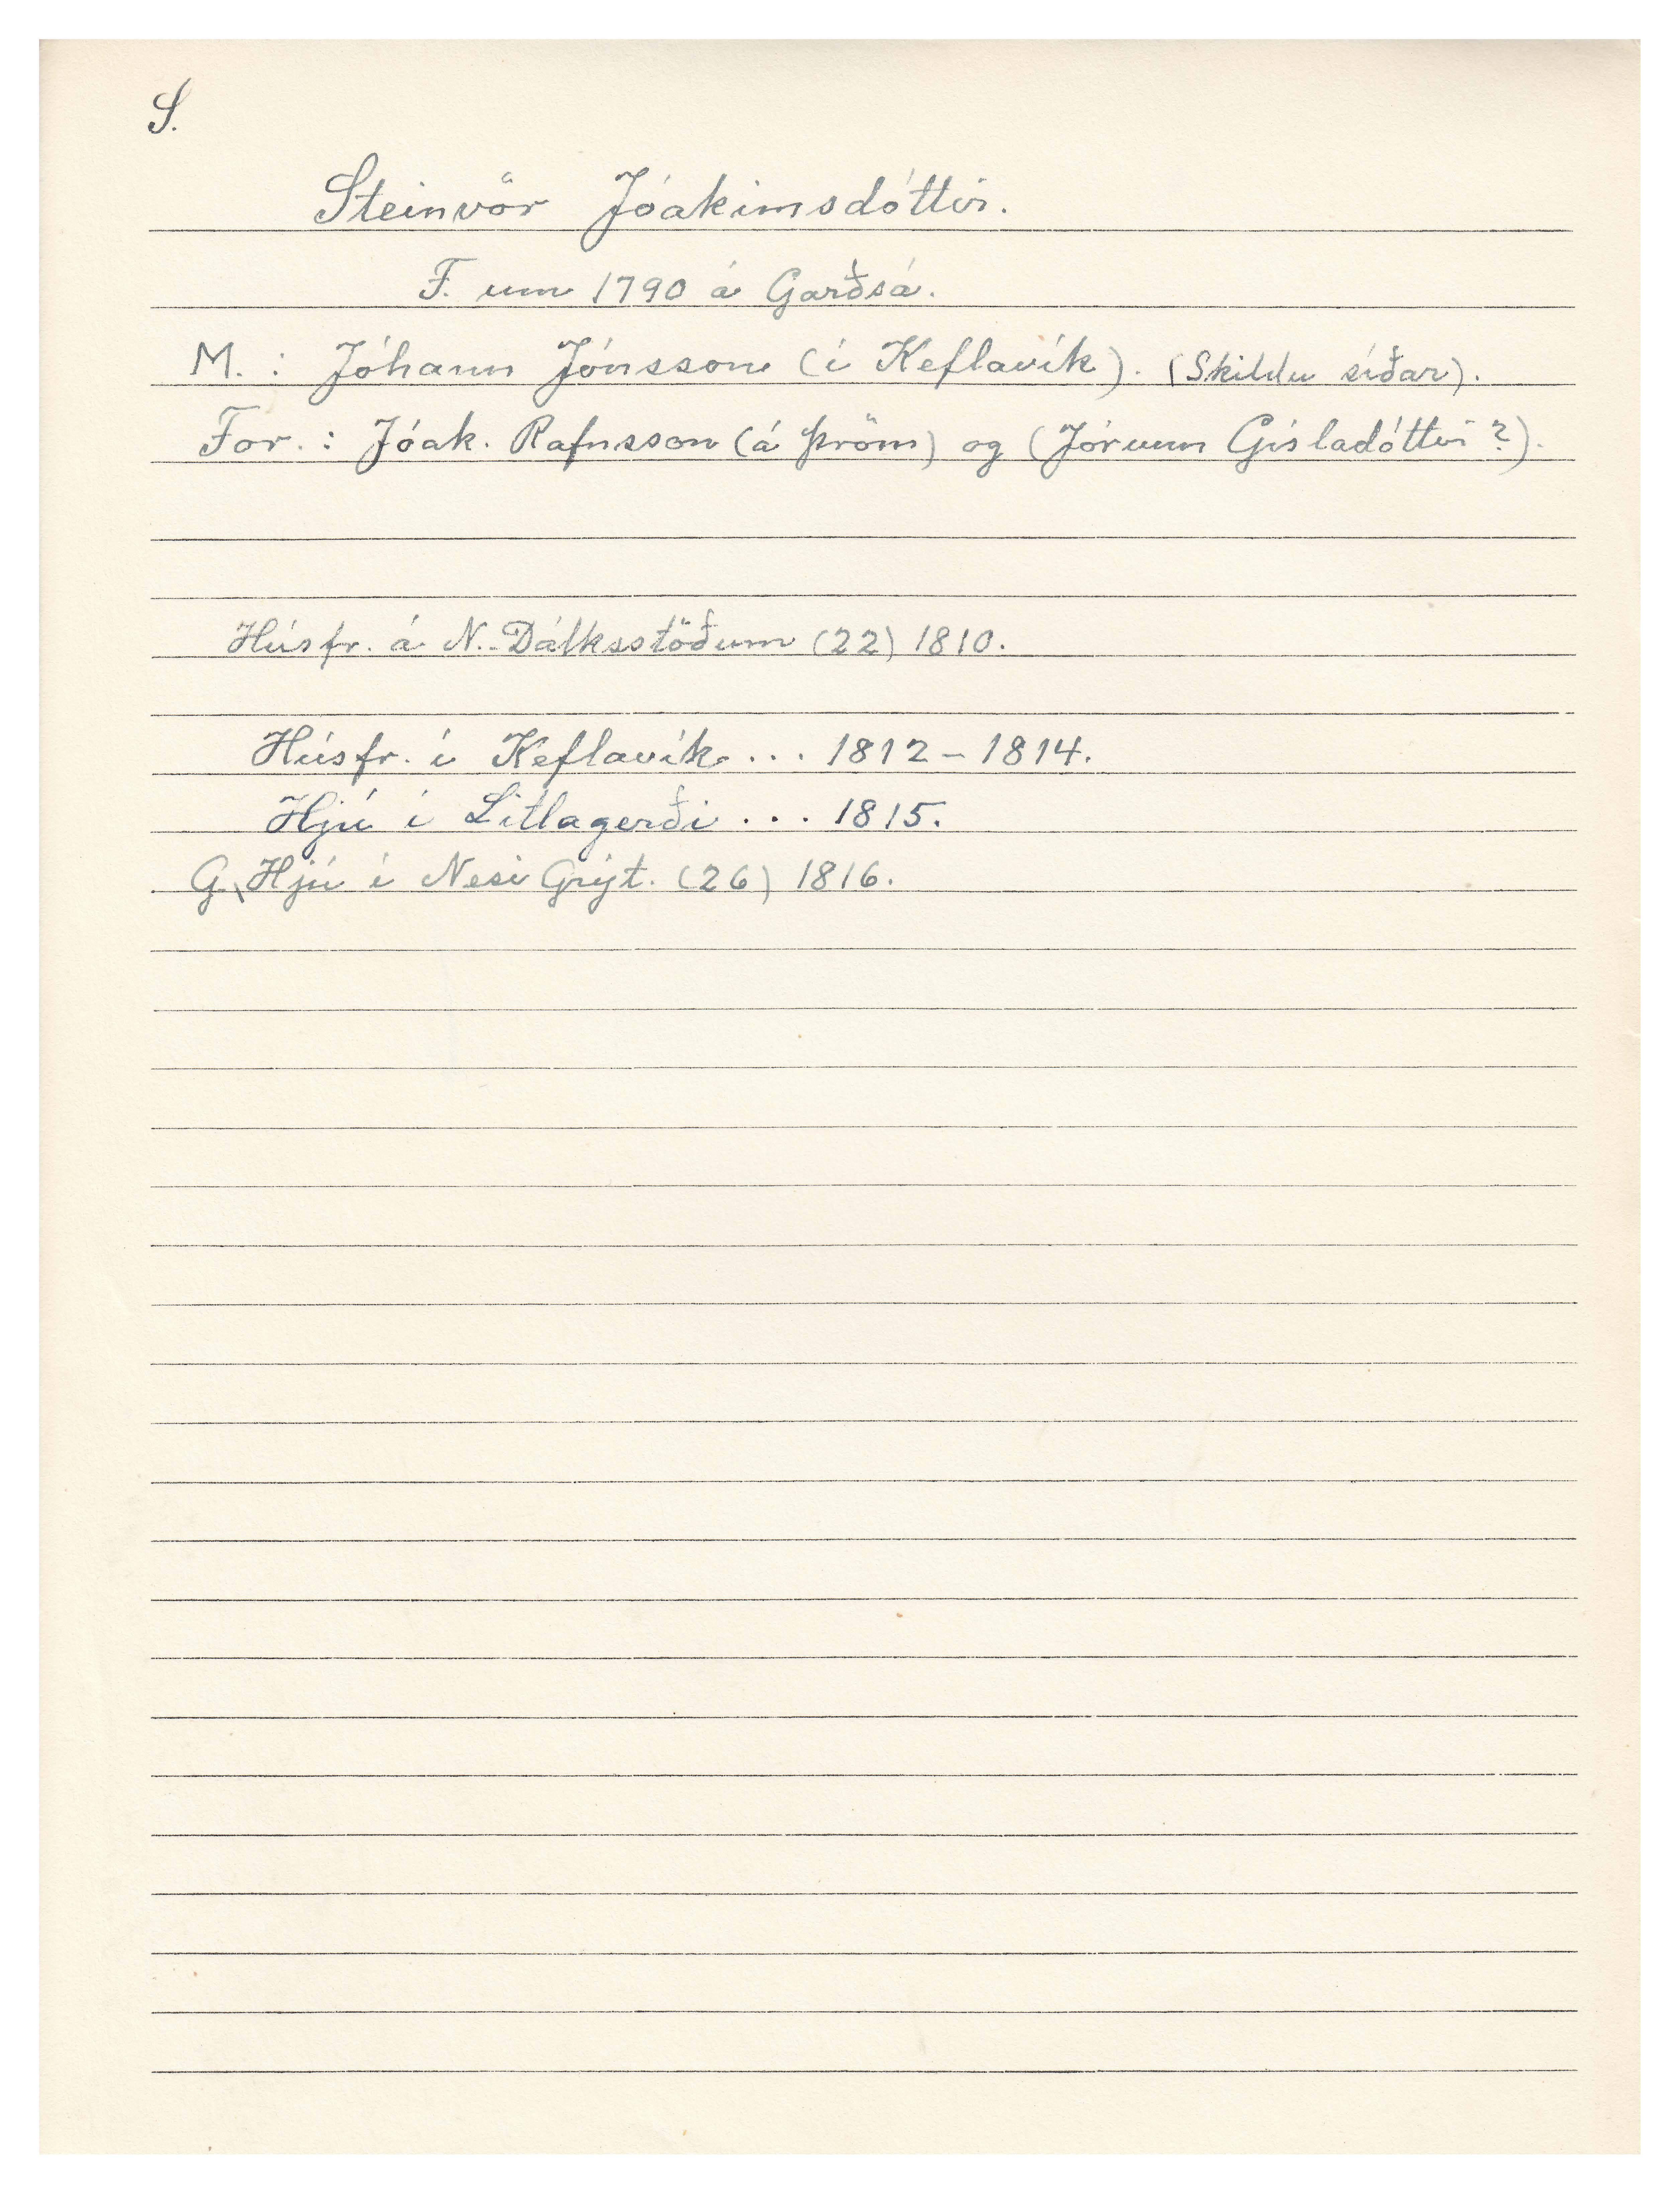 S.
Steinvör Jóakimsdóttir.
F. um 1790 á Garðsá.
M. : Jóhann Jónsson (í Keflavík). (Skildu síðar).
For. : Jóak. Rafnsson (á Þröm) og (Jórunn Gísladóttir ?).
Húsfr. á N.-Dálksstöðum (22) 1810.
Húsfr. í Keflavík ... 1812 - 1814.
Hjú í Litlagerði ... 1815.
G. Hjú í Nesi Grýt. (26) 1816.